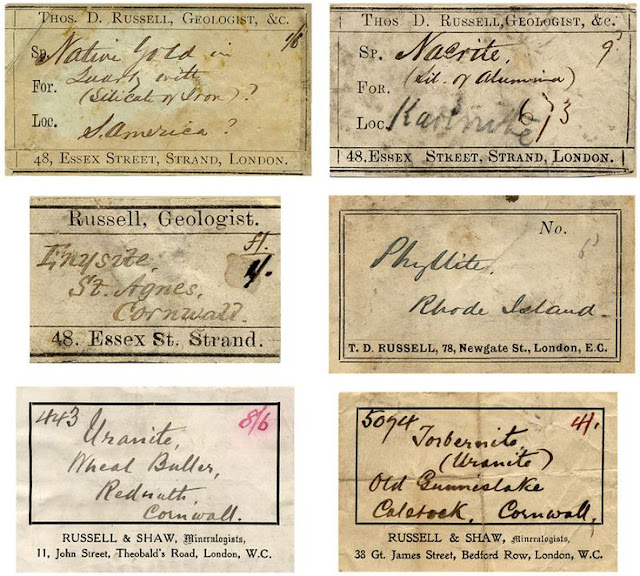 THOS. D. RUSSELL, GEOLOGIST, &C.
1/6
SP. Native Gold in
FOR. Quartz with
(Silicate of Iron)?
LOC. S. America?
48, ESSEX STREET, STRAND, LONDON.
THOS D. RUSSELL, GEOLOGIST, &C.
SP. Nacrite, 9d
FOR. (Sil. of Alumina)
LOC. Kaolinite 6 } 3
48. ESSEX STREET, STRAND, LONDON.
Russell, Geologist.
Enysite,
St. Agnes,
Cornwall.
48. Essex St. Strand.
No.
Phyllite, 6d
Rhode Island.
T. D. RUSSELL, 78, Newgate St., London, E.C.
443 8/6
Uranite,
Wheal Buller,
Redruth,
Cornwall.
RUSSELL & SHAW, Mineralogists,
11, John Street, Theobald's Road, London, W.C.
5094 4/.
Torbernite,
(Uranite)
Old Gunnislake
Calstock, Cornwall.
RUSSELL & SHAW, Mineralogists,
38 Gt. James Street, Bedford Row, London, W.C.